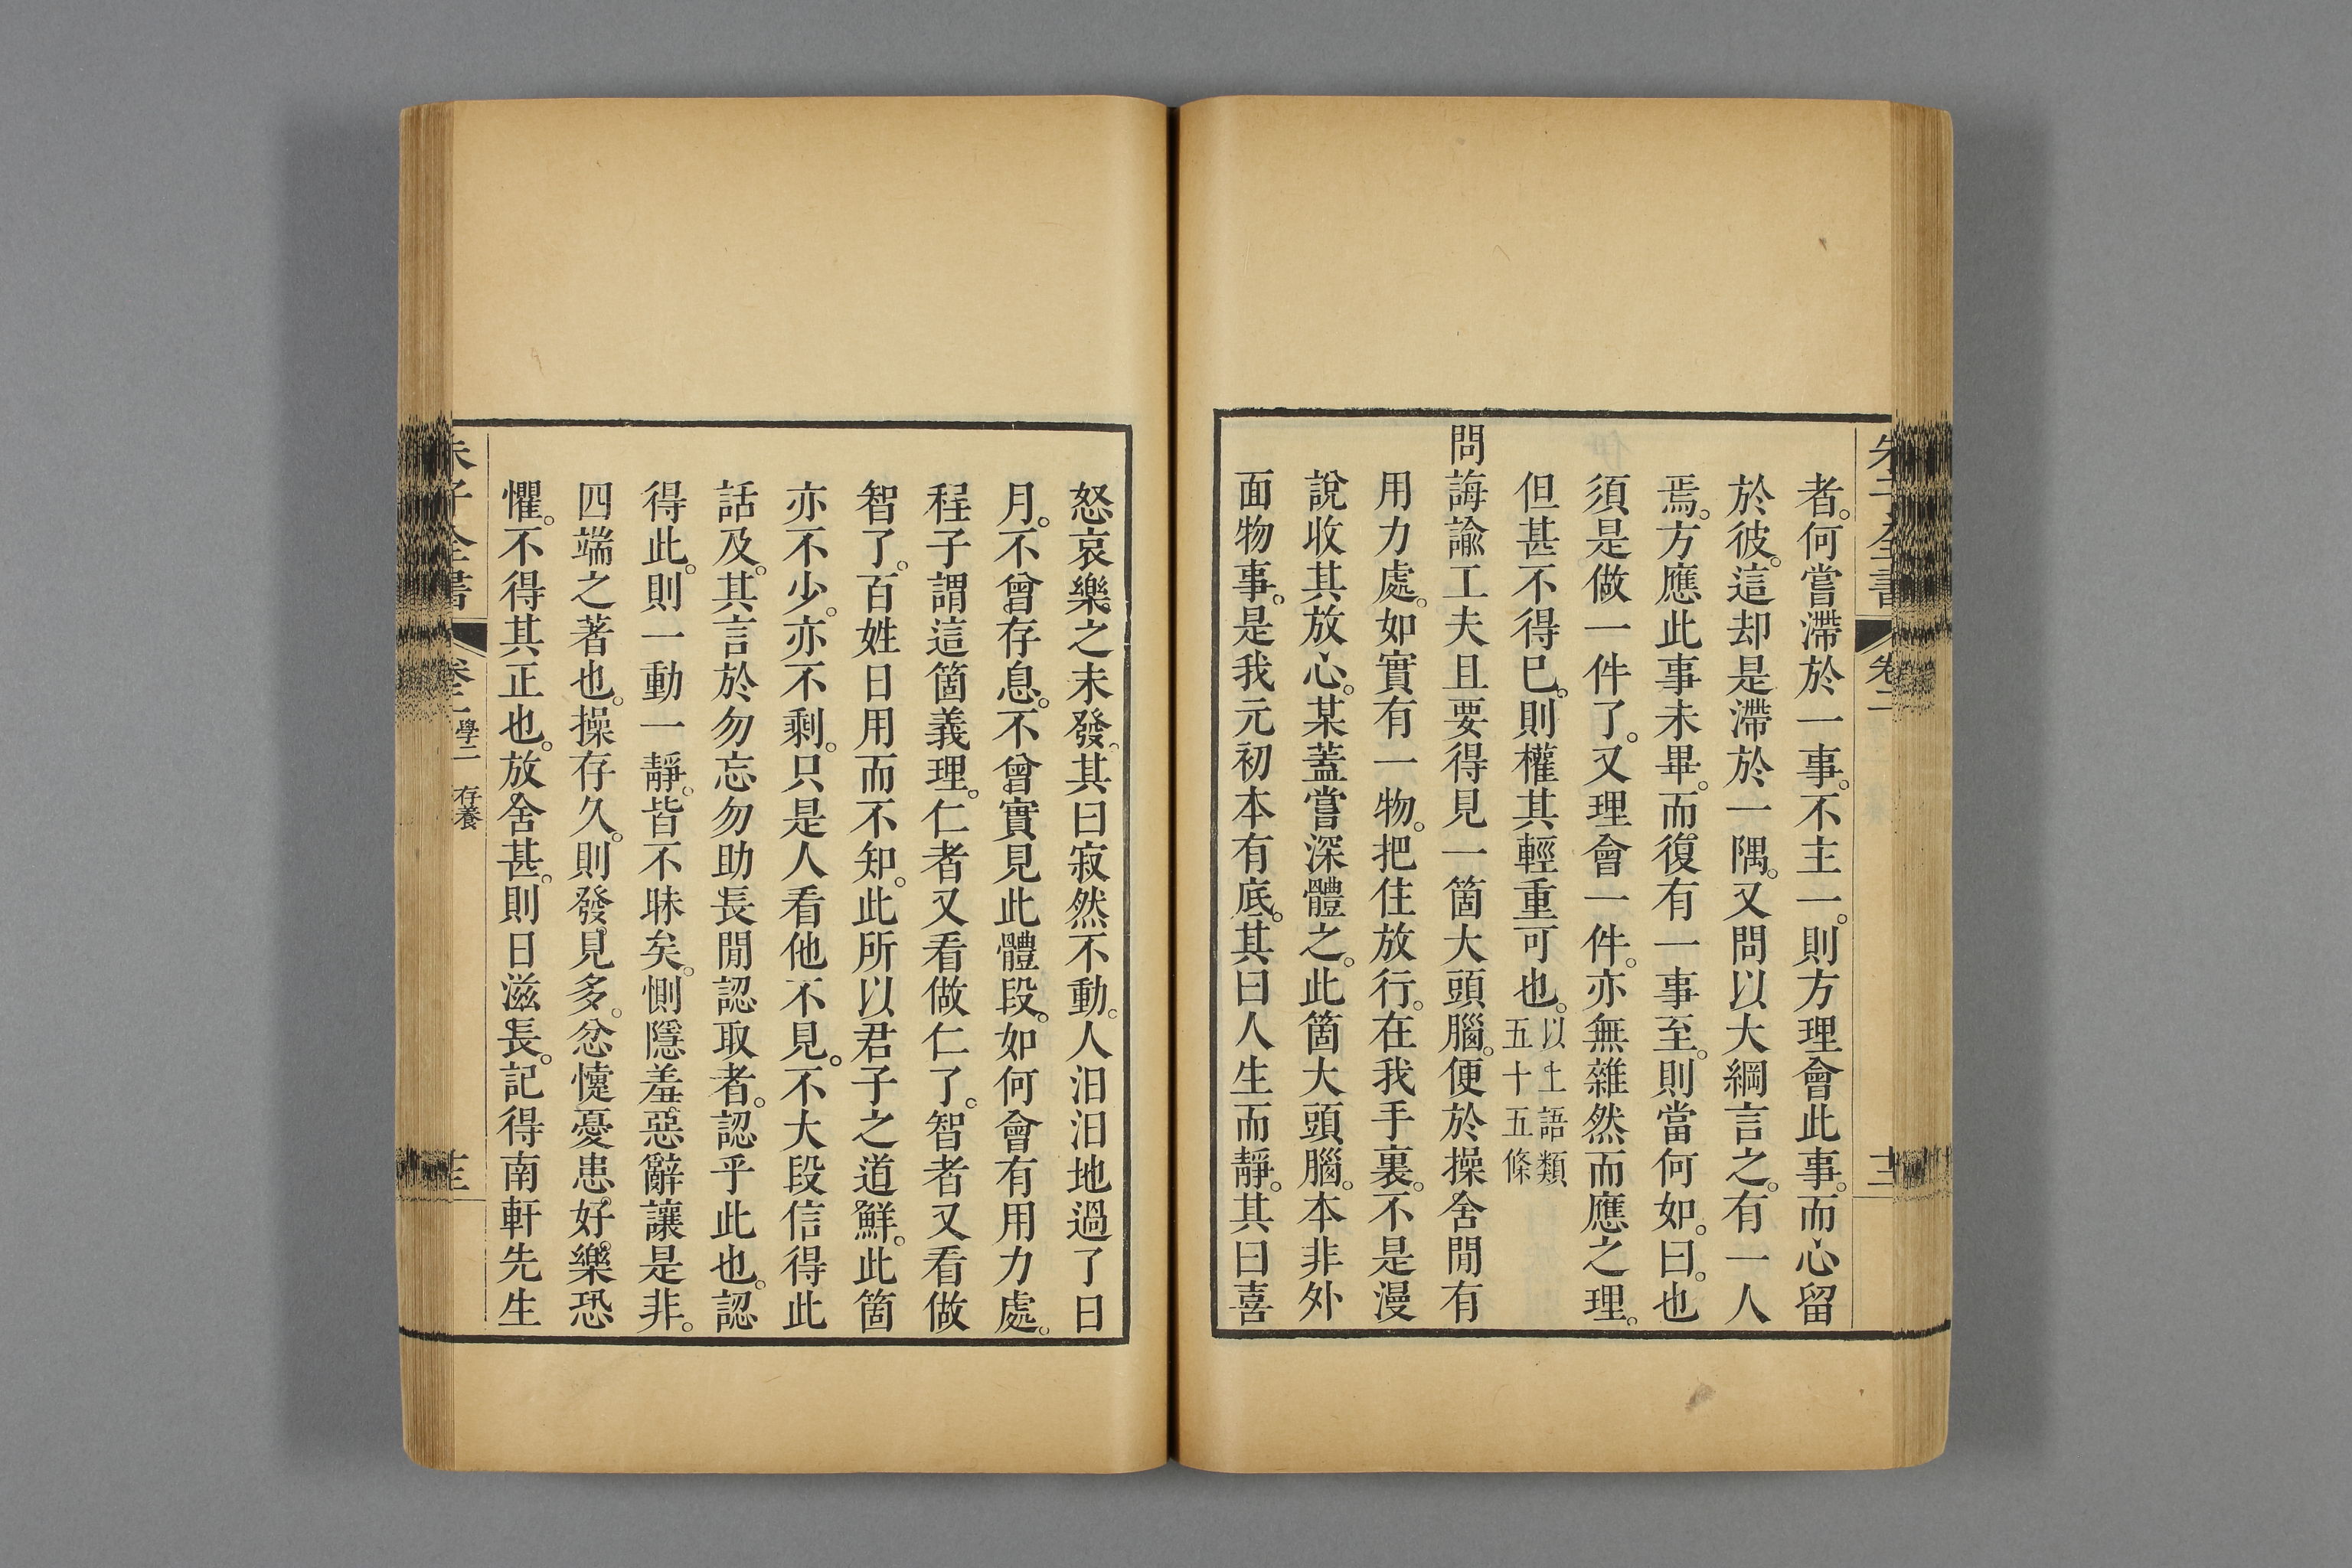 者。何嘗滯於一事。不主一。則方理會此事。而心留
於彼。這却是滯於一隅。又問以大綱言之。有一人
焉。方應此事未畢。而復有一事至。則當何如。曰。也
須是做一件了。又理會一件。亦無雜然而應之理。
但甚不得已。則權其輕重可也。以上語類
五十五條
問誨諭工夫且要得見一箇大頭腦。便於操舍閒有
用力處。如實有一物。把住放行。在我手裏。不是漫
說收其放心。某蓋嘗深體之。此箇大頭腦。本非外
面物事。是我元初本有底。其曰人生而靜。其曰喜
怒哀樂之未發。其曰寂然不動。人汨汨地過了日
月。不曾存息。不曾實見此體段。如何會有用力處。
程子謂這箇義理。仁者又看做仁了。智者又看做
智了。百姓日用而不知。此所以君子之道鮮。此箇
亦不少。亦不剩。只是人看他不見。不大段信得此
話及。其言於勿忘勿助長閒認取者。認乎此也。認
得此。則一動一靜。皆不昧矣。惻隱羞惡辭讓是非。
四端之著也。操存久。則發見多。忿懥憂患好樂恐
懼。不得其正也。放舍甚。則日滋長。記得南軒先生
朱子全書
卷二
學二 存養